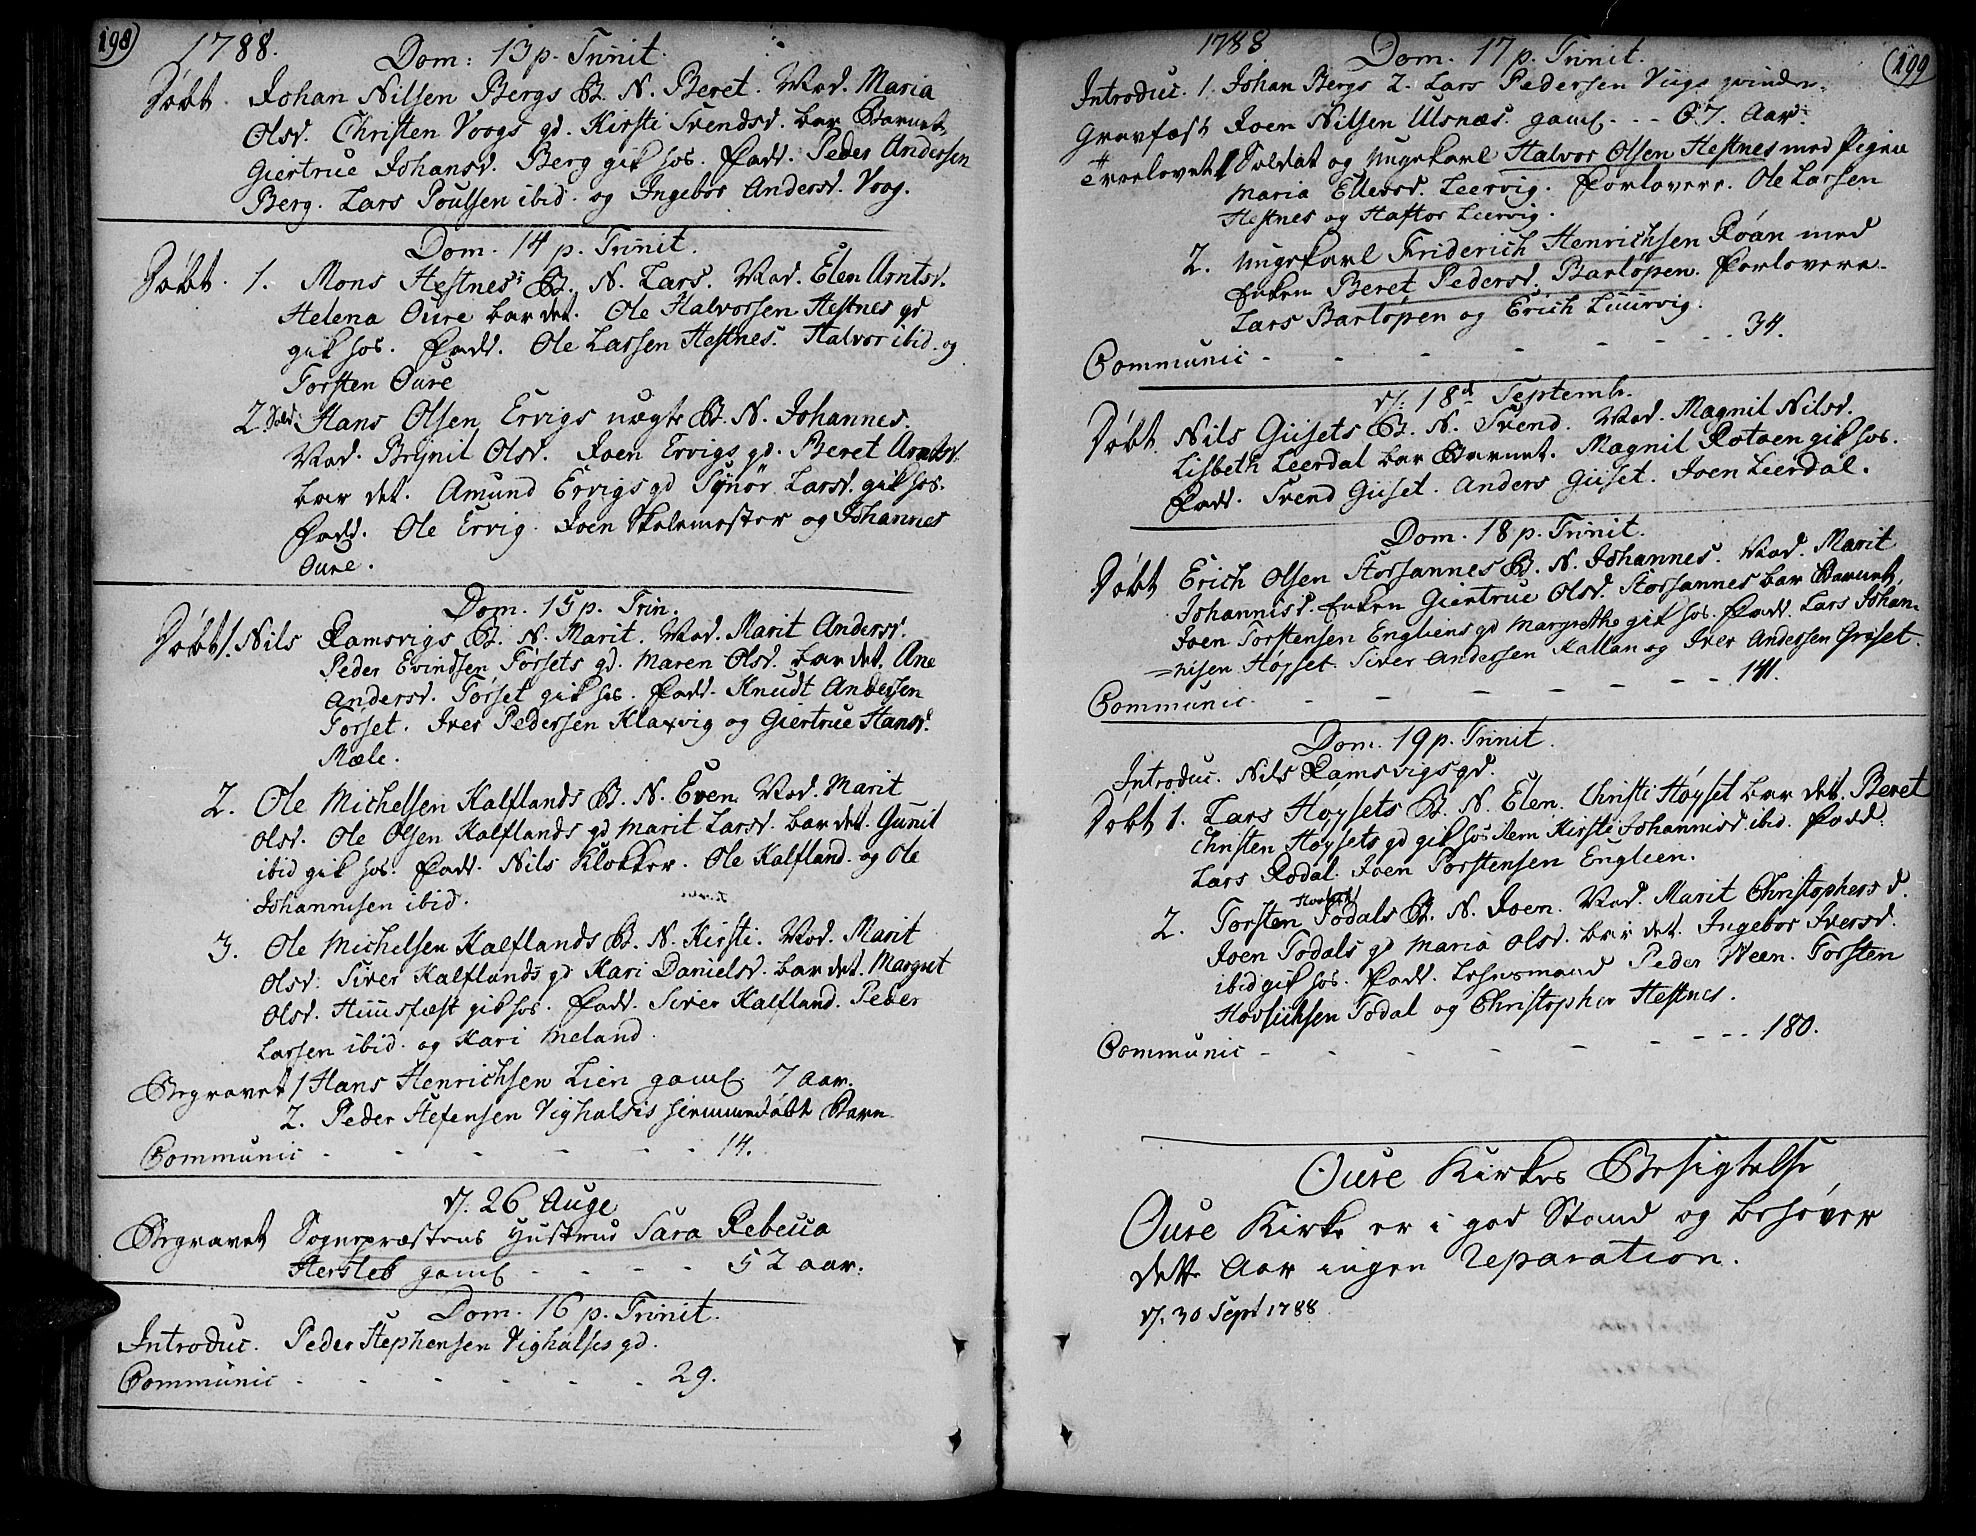 198
1788.
Dom: 13 p. Trinit.
Døbt. Johan Nilsen Bergs B. N. Beret. Mod. Maria
Olsd. Christen Voogs gd. Kirsti Svendsd. bar Barnet
Giertrue Johansd. Berg gik hos. Fadd. Peder Andersen
Berg. Lars Poulsen ibid. og Ingebor Andersd. Voog.
Dom. 14 p. Trinit.
Døbt. 1. Mons Hestnes B. N. Lars. Mod. Elen Arntsd.
Helena Oure bar det. Ole Halvorsen Hestnes gd
gik hos. Fadd. Ole Larsen Hestnes. Halvor ibid. og
Torsten Oure
2. Sold. Hans Olsen Ervigs uægte B. N. Johannes.
Mod. Brynil Olsd. Joen Ervigs gd. Beret Arntsd.
bar det. Amund Ervigs gd Synør Larsd. gik hos.
Fadd. Ole Ervig. Joen Skolemester og Johannes
Oure.
Dom. 15 p. Trin.
Døbt 1. Nils Ramsvigs B. N. Marit. Mod. Marit Andersd.
Peder Evindsen Torsets gd. Maren Olsd. bar det. Ane
Andersd. Torset gik hos. Fadd. Knudt Andersen
Torset. Iver Pedersen Klaxvig og Giertrue Hansd.
Mæle.
2. Ole Michelsen Kalflands B. N. Even. Mod. Marit
Olsd. Ole Olsen Kalflands gd Marit Larsd. bar det. Gunil
ibid gik hos. Fadd. Nils Klokker. Ole Kalfland. og Ole
Johannisen ibid.
3. Ole Michelsen Kalflands B. N. Kirsti. Mod. Marit
Olsd. Siver Kalflands gd Kari Danielsd. bar det. Margret
Olsd. Huusfæst gik hos. Fadd. Siver Kalfland. Peder
Larsen ibid. og Kari Meland.
Begravet 1 Hans Henrichsen Lien gaml 7 Aar.
2. Peder Stefensen Vighalsis hiemmedøbt Barn
Communic - - - - - - - 14.
d. 26 Aug
Begravet Sognepræstens Hustrue Sara Rebecca
Hersleb gaml - - - - 52 aar.
Dom. 16 p. Trinit.
Introduc. Peder Stephensen Vighalsis gd.
Communic - - - - - - 29.
1788
199
Dom. 17 p. Trinit.
Introduc. 1. Johan Bergs 2. Lars Pedersen Viigs qvinder.
Gravfæst Joen Nilsen Ulsnæs. gaml - - - 67. Aar.
Trolovet 1 Soldat og Ungekarl Halvor Olsen Hestnes med Pigen
Maria Ellevsd. Leervig. Forlovere. Ole Larsen
Hestnes og Haftor Leervig.
2. Ungekarl Friderich Henrichsen Roan med
Enken Beret Pedersd. Barlopen. Forlovere.
Lars Barlopen og Erich Liurvig.
Communic - - - - - - - 34.
d. 18d Septembr.
Døbt. Nils Giisets B. N. Svend. Mod. Magnil Nilsd.
Lisbeth Leerdal bar Barnet. Magnil Rotaen gik hos.
Fadd. Svend Giiset. Anders Giiset. Joen Leerdal.
Dom. 18 p. Trinit.
Døbt Erich Olsen Storsannes B. N. Johannes. Mod. Marit
Johannisd. Enken Giertrue Olsd. Storsannes bar Barnet.
Joen Torstensen Engliens gd Margrethe gik hos. Fadd. Lars Johan-
=nisen Høyset. Siver Andersen Kallan og Iver Andersen Griset.
Communic - - - - - - - 141.
Dom. 19 p. Trinit.
Introduc. Nils Ramsvigs gd.
Døbt 1. Lars Høysets B. N. Elen. Christi Høyset bar det. Beret
Christen Høysets gd gik hos item Kirsti Johannisd. ibid. Fadd:
Lars Rodal. Joen Torstensen Englien.
2. Torsten Todals B. N. Joen. Mod. Marit Christophersd.
Joen Todals gd Maria Olsd. bar det. Ingebor Iversd.
ibid gik hos. Fadd. Lehnsmand Peder Ween. Torsten
Todal og Christopher Hestnes.
Communic - - - - - - - - 180.
Oure Kirkes Besigtelse
Oure Kirke er i god Stand og behøver
dette Aar ingen Reparation.
d. 30 Sept 1788